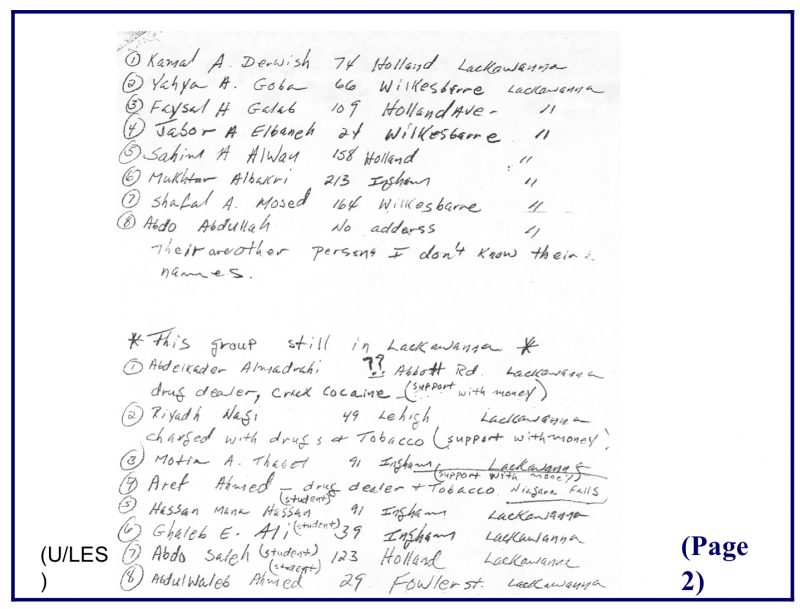 ① Kamal A. Derwish 74 Holland Lackawanna
② Yahya A. Goba 66 Wilkesbarre Lackawanna
③ Faysal H Galab 109 Holland Ave- "
④ Jabor A Elbaneh 24 Wilkesbarre "
⑤ Sahim A Alwan 158 Holland "
⑥ Mukhtar Albakri 213 Ingham "
⑦ Shafal A. Mosed 164 Wilkesbarre "
⑧ Abdo Abdullah No adderss "
Their are other persons I don't know their
names.
* This group still in Lackawanna *
① Abdelkader Almadrahi ?? Abbott Rd. Lackawanna
drug dealer, crack cocaine (support with money)
② Riyadh Nagi 49 Lehigh Lackawanna
charged with drugs + Tobacco (support with money)
③ Motia A. Thabet 91 Ingham Lackawanna
(support with money)
④ Aref Ahmed - drug dealer + Tobacco Niagara Falls
⑤ Hassan Mana Hassan (student) 91 Ingham Lackawanna
⑥ Ghaleb E. Ali (student) 39 Ingham Lackawanna
(U/LES
)
⑦ Abdo Saleh (student) 123 Holland Lackawanna
⑧ AbdulWaleb Ahmed (student) 29 Fowler st. Lackawanna
(Page
2)